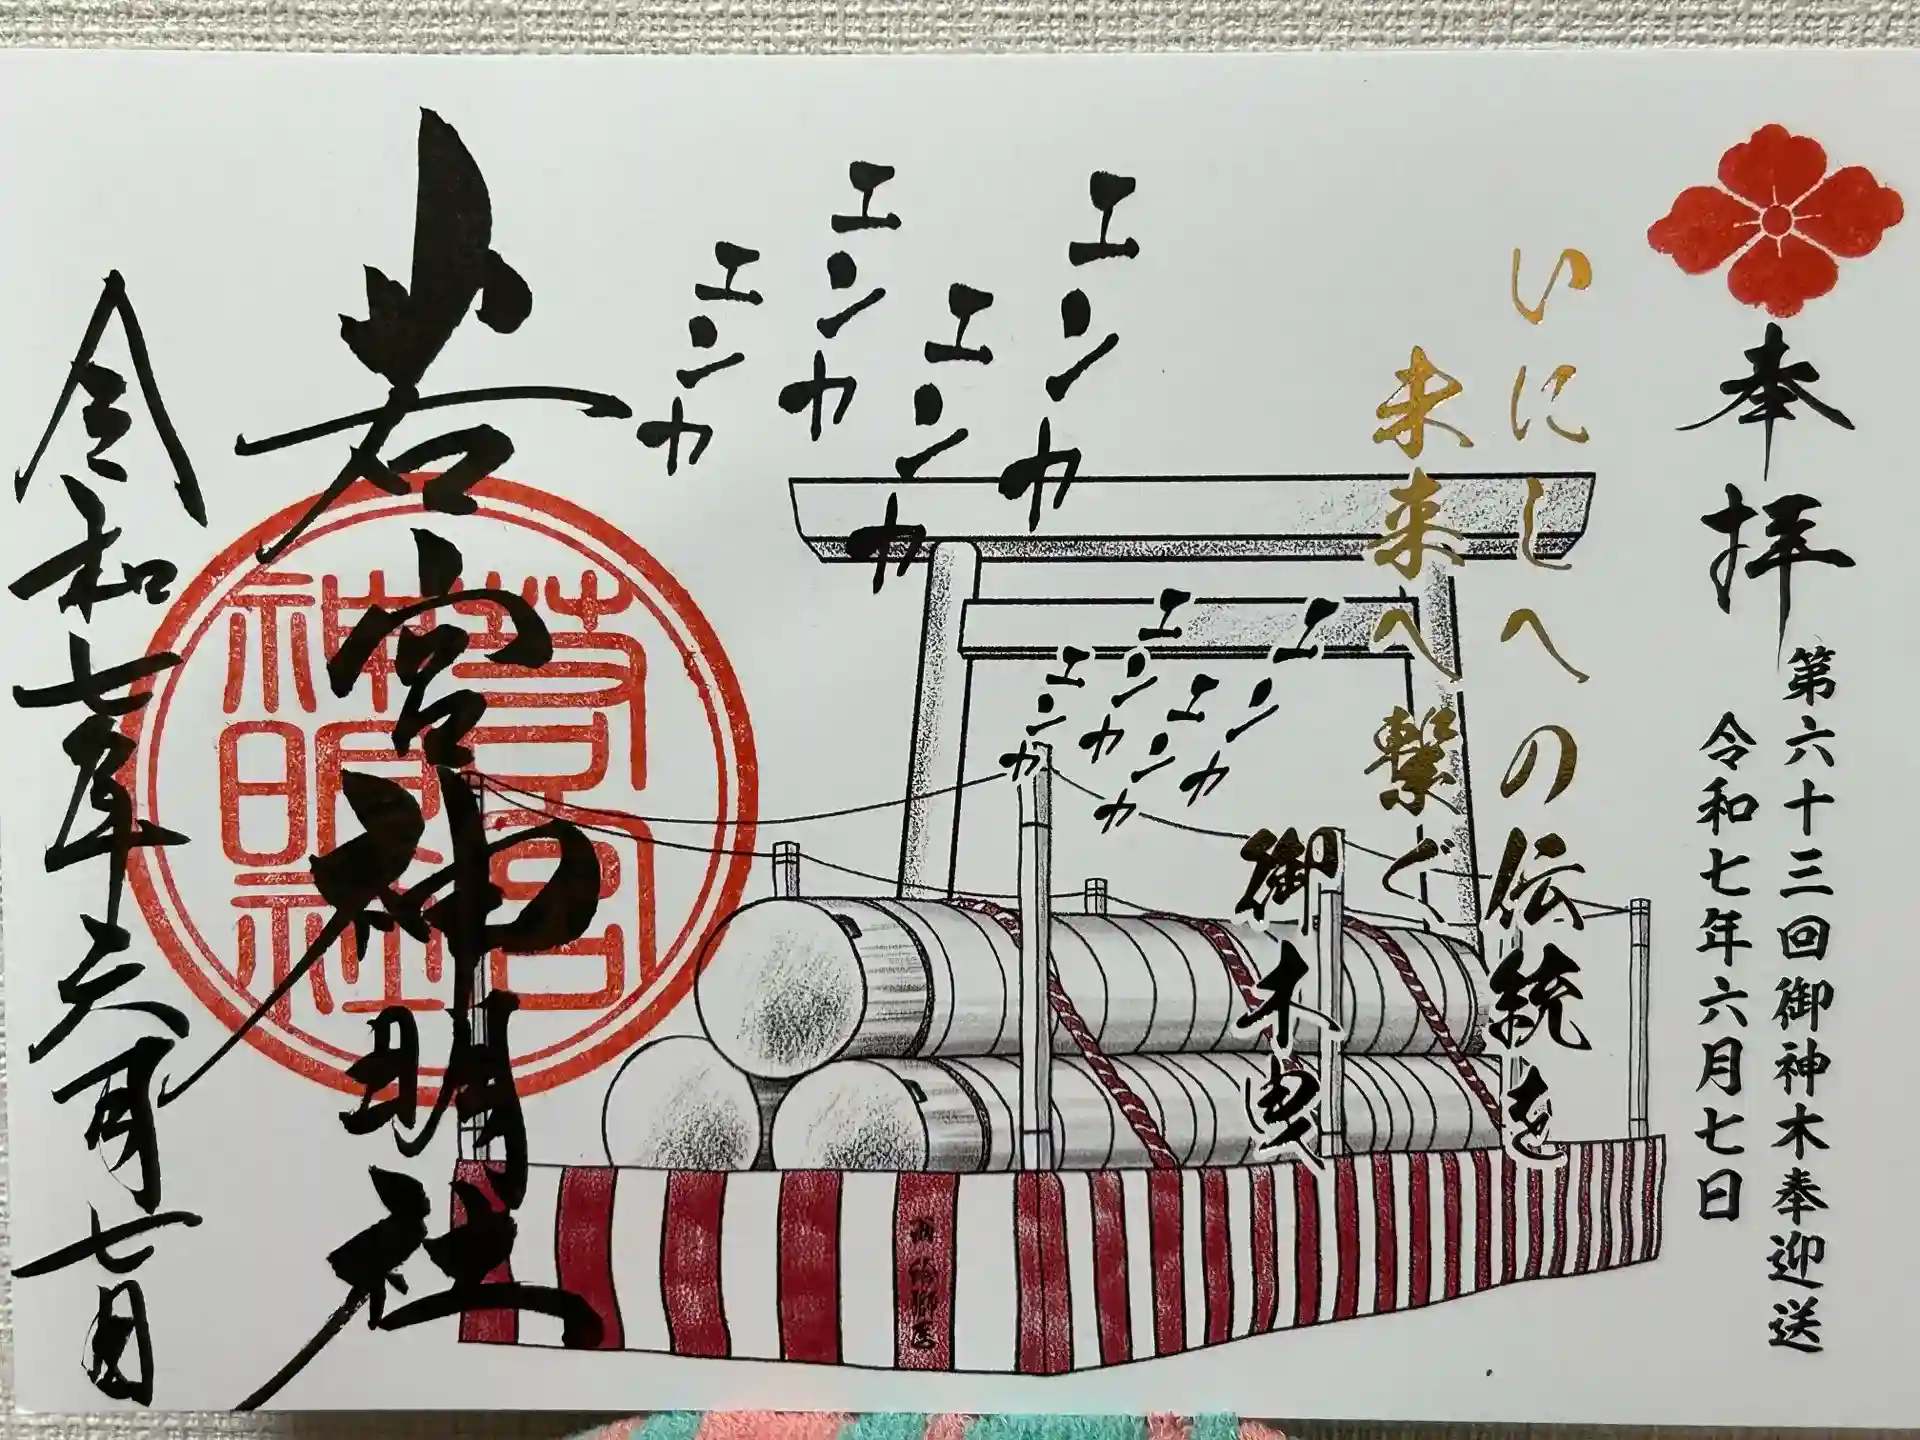 奉拝
第六十三回御神木奉迎送
令和七年六月七日
いにしへの伝統を
未来へ繋ぐ
御木曳
エンヤ
エンヤ
エンヤ
エンヤ
エンヤ
エンヤ
エンヤ
エンヤ
若宮神明社
若宮
神明社
令和七年六月七日